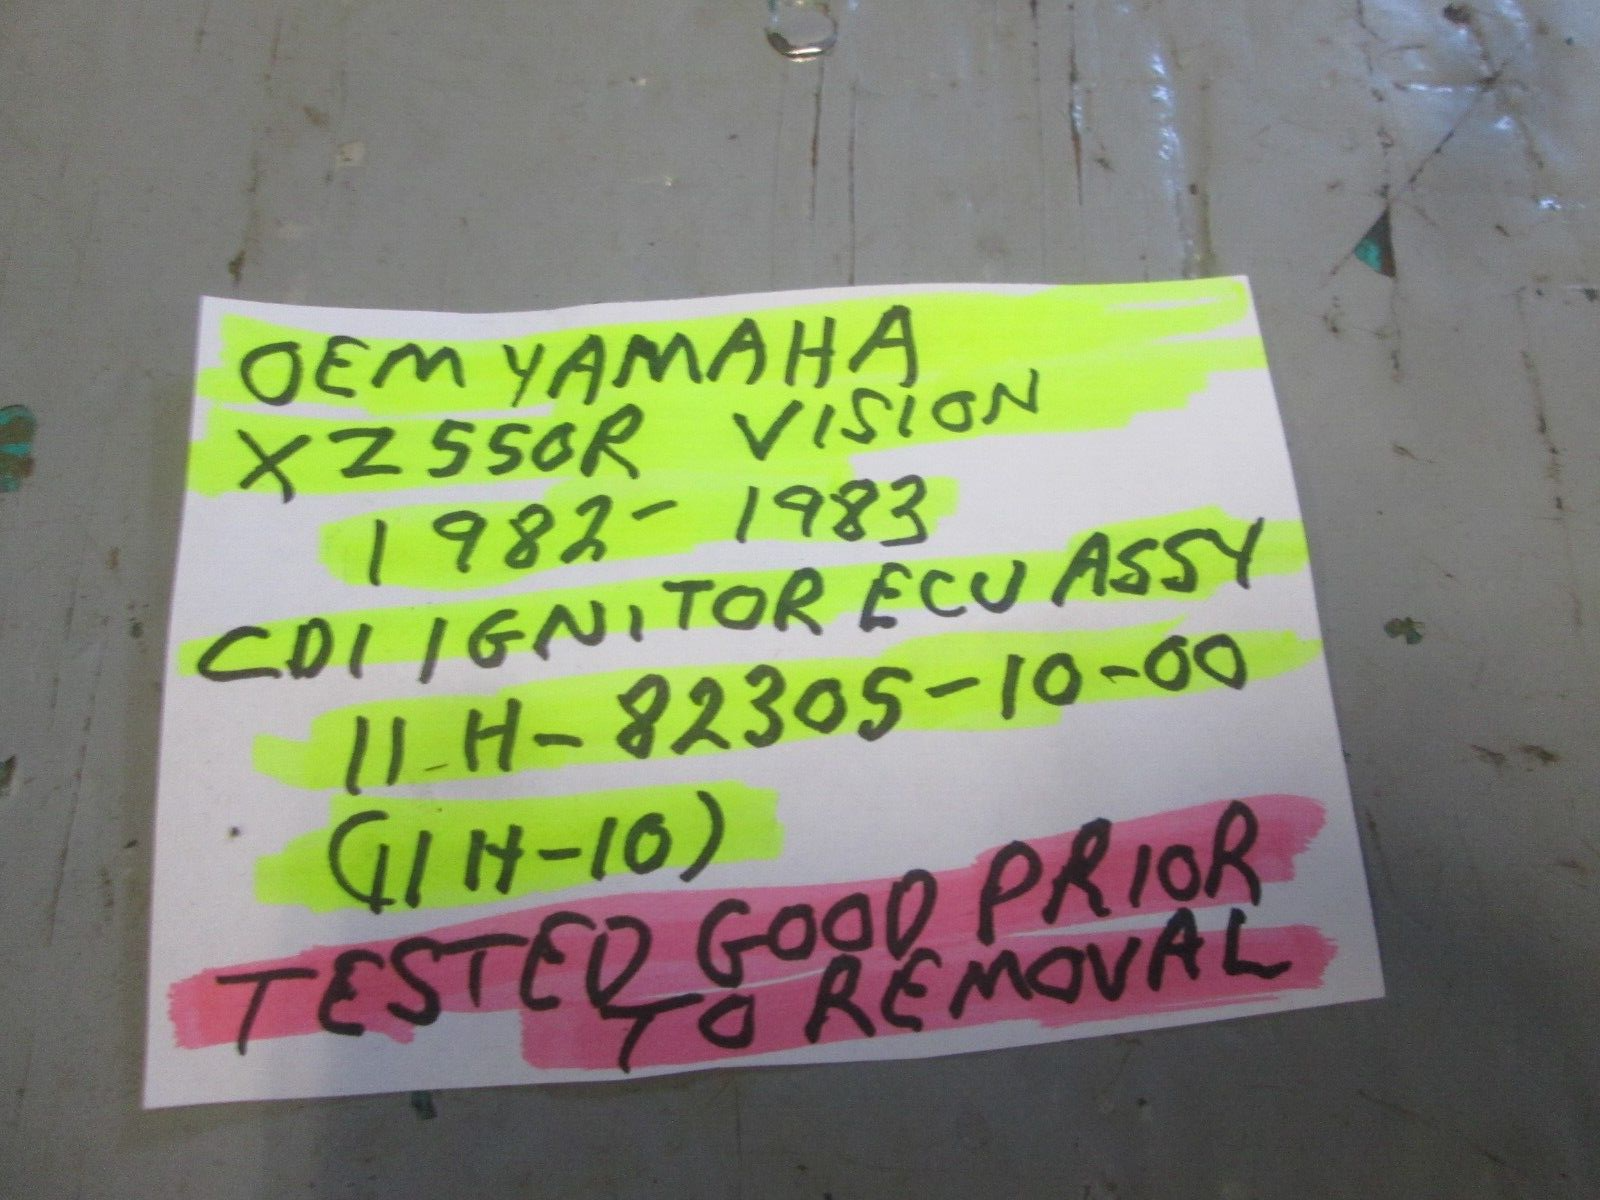 OEM YAMAHA
XZ550R VISION
1982-1983
CDI IGNITOR ECU ASSY
11H-82305-10-00
(11H-10)
TESTED GOOD PRIOR
TO REMOVAL